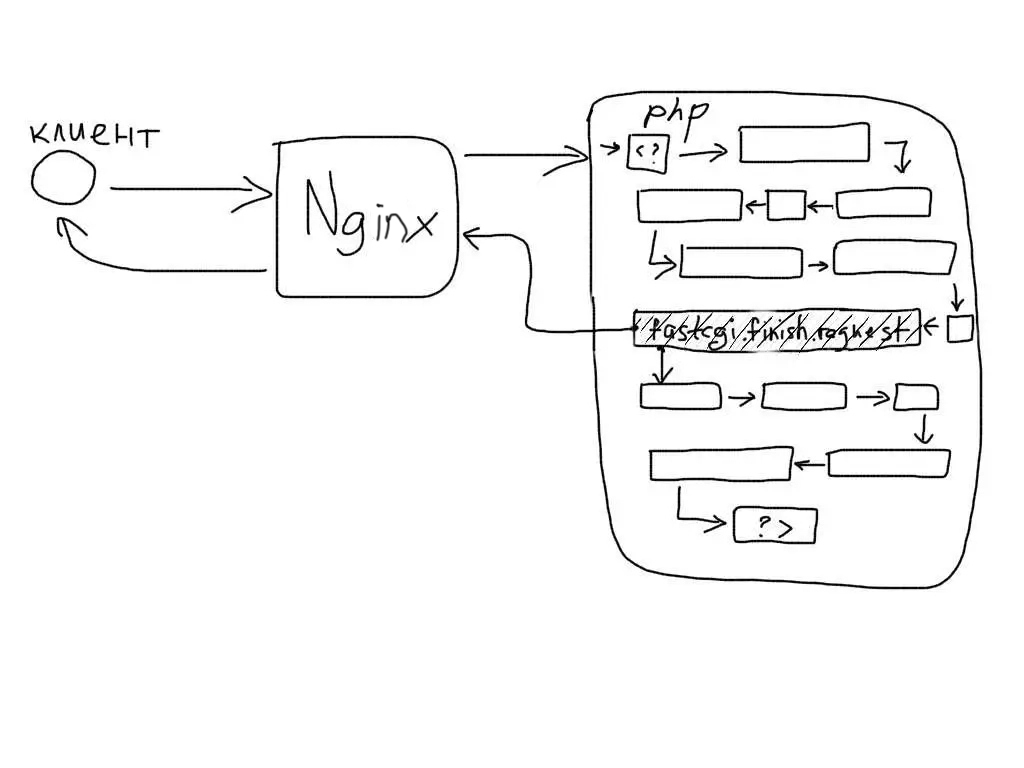 клиент
Nginx
php
<?
fastcgi.finish.reqnest
?>